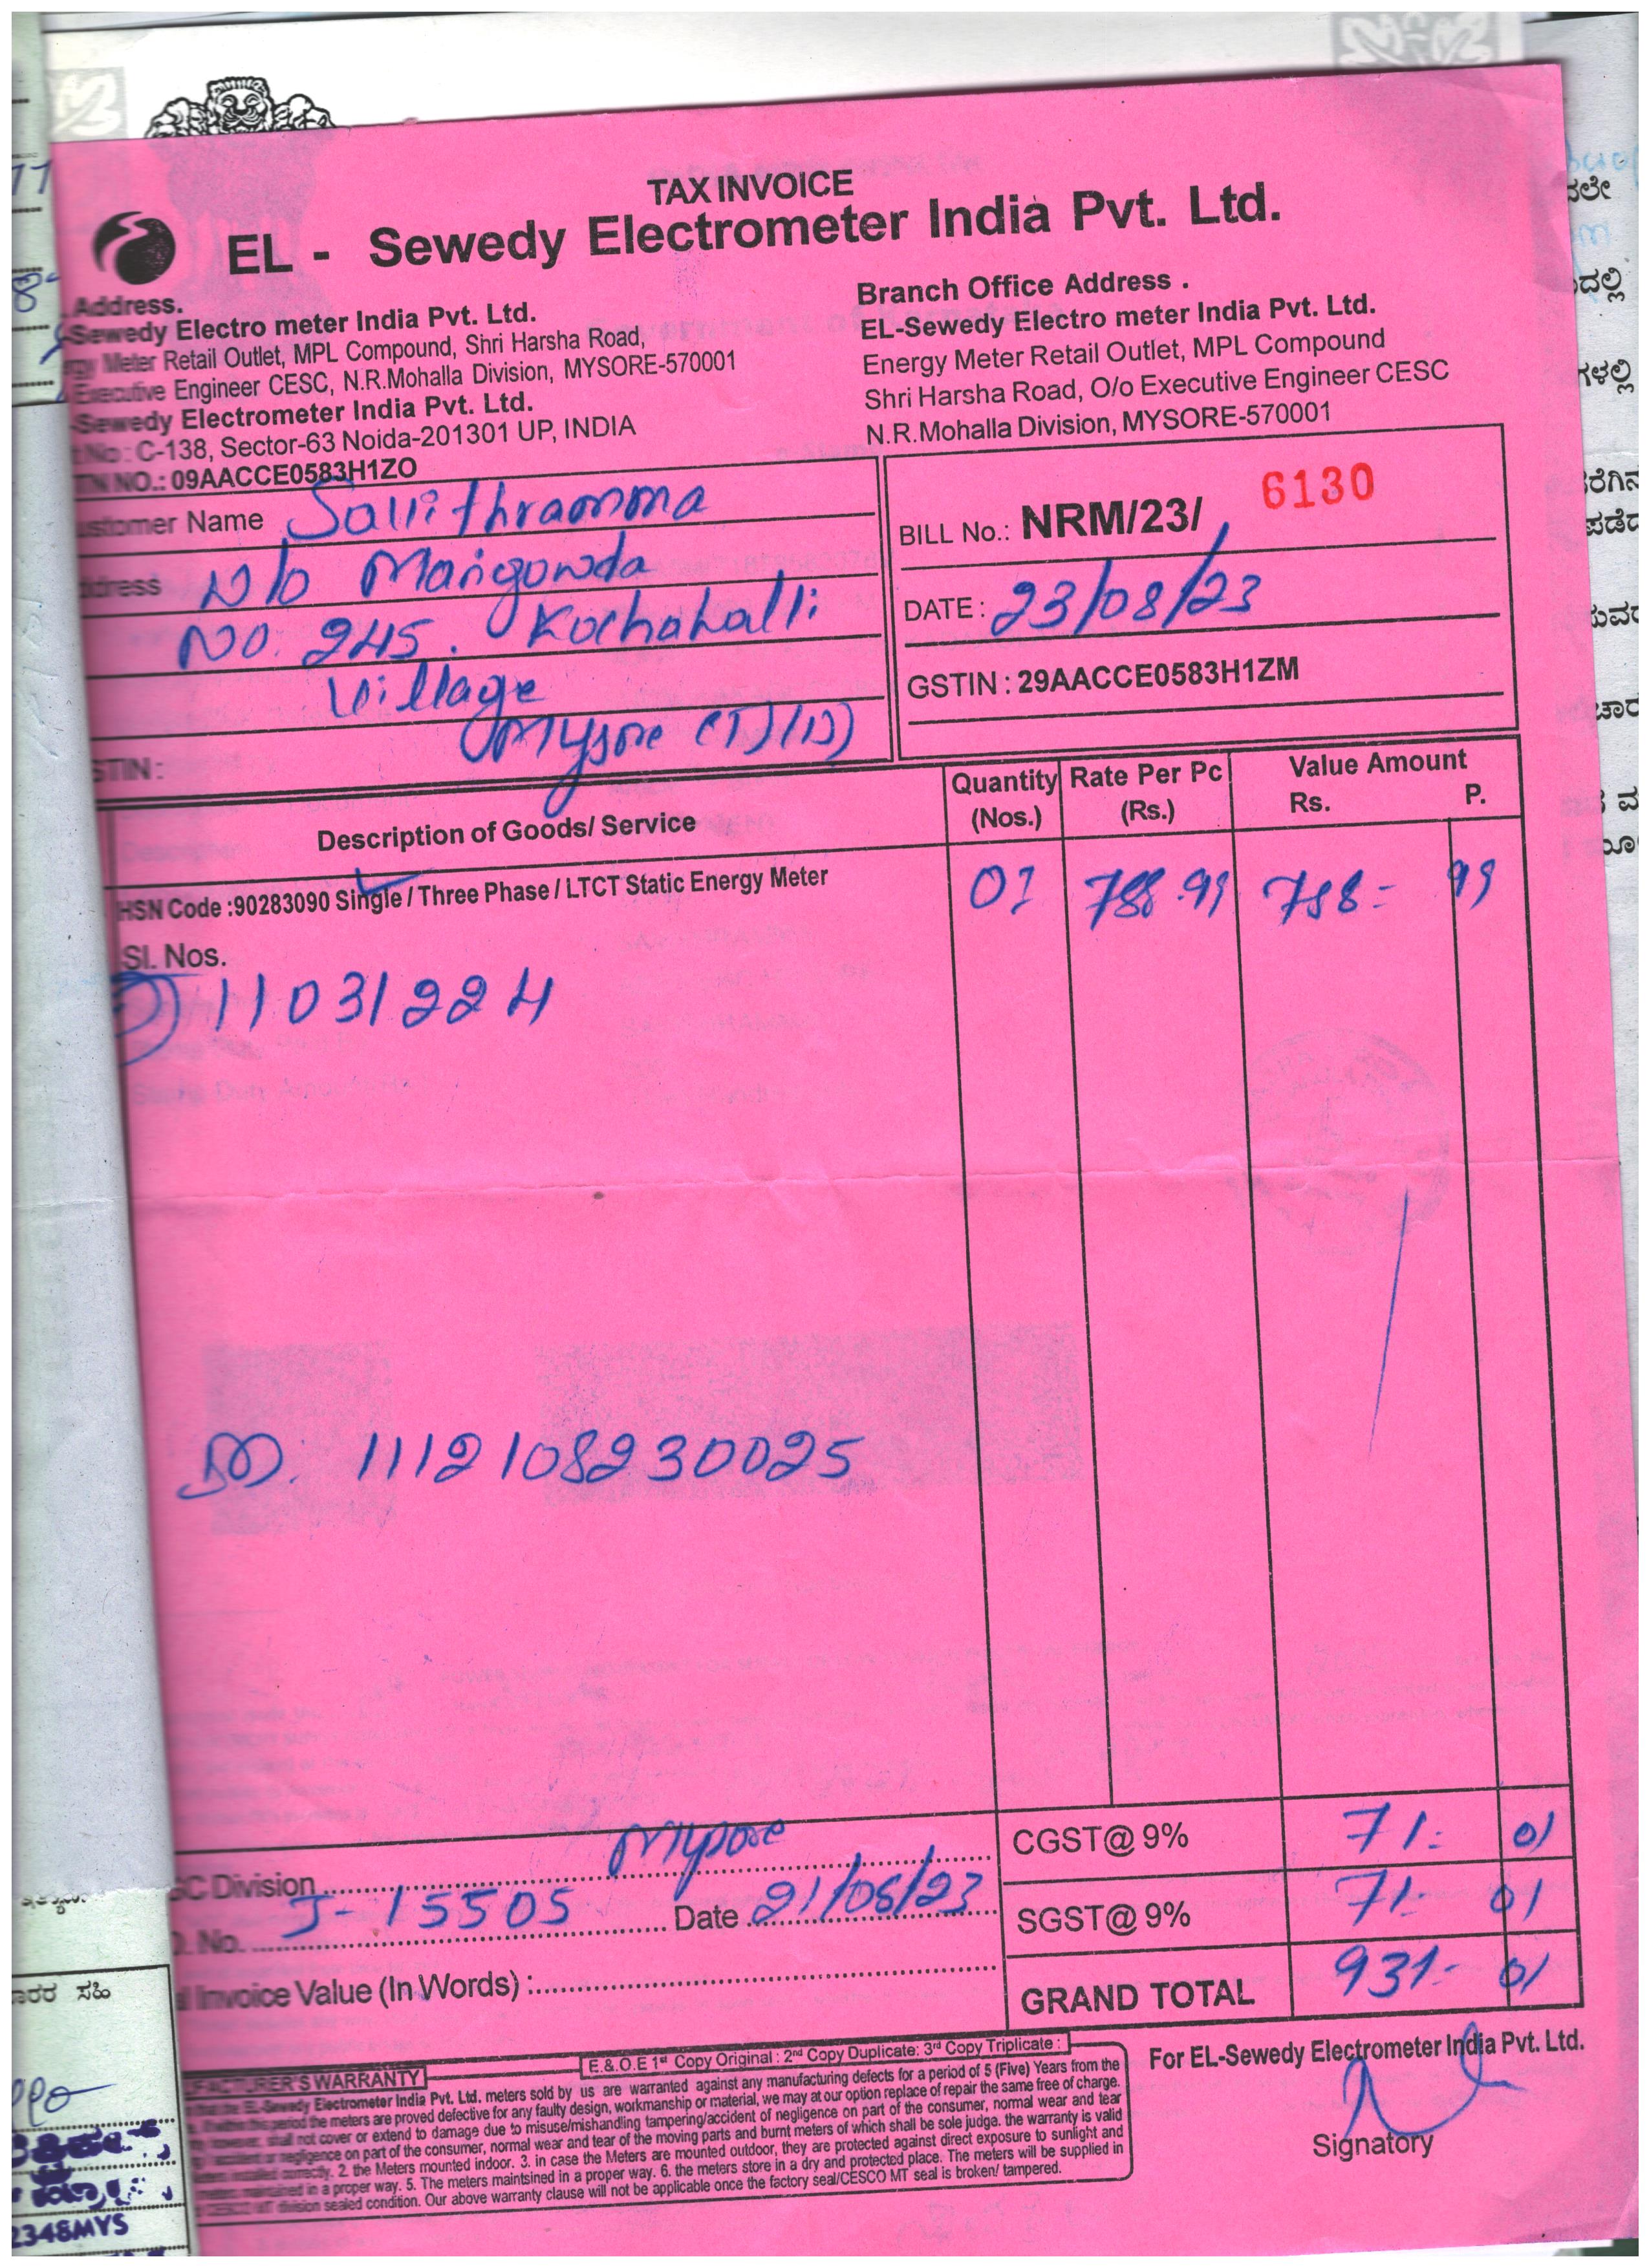 TAX INVOICE
EL - Sewedy Electrometer India Pvt. Ltd.
Address.
Sewedy Electro meter India Pvt. Ltd.
Meter Retail Outlet, MPL Compound, Shri Harsha Road,
Executive Engineer CESC, N.R.Mohalla Division, MYSORE-570001
Sewedy Electrometer India Pvt. Ltd.
No : C-138, Sector-63 Noida-201301 UP, INDIA
NO.: 09AACCE0583H1ZO
Branch Office Address .
EL-Sewedy Electro meter India Pvt. Ltd.
Energy Meter Retail Outlet, MPL Compound
Shri Harsha Road, O/o Executive Engineer CESC
N.R.Mohalla Division, MYSORE-570001
Name Savithramma
W/o Marigowda
No. 245. Kochahalli
Village
Mysore (T)/(D)
STIN :
BILL No.: NRM/23/ 6130
DATE : 23/08/23
GSTIN : 29AACCE0583H1ZM
Description of Goods/ Service
Quantity (Nos.)
Rate Per Pc (Rs.)
Value Amount
Rs. P.
HSN Code :90283090 Single / Three Phase / LTCT Static Energy Meter 01 788.99 788= 99
Sl. Nos.
11031224
1112108230025
Division Mysore
No. J-15505 Date 21/08/23
Invoice Value (In Words) :
CGST@ 9% 71= 01
SGST@ 9% 71- 01
GRAND TOTAL 931- 01
E.& O.E 1st Copy Original : 2nd Copy Duplicate: 3rd Copy Triplicate :
WARRANTY
EL-Sewedy Electrometer India Pvt. Ltd. meters sold by us are warranted against any manufacturing defects for a period of 5 (Five) Years from the
period the meters are proved defective for any faulty design, workmanship or material, we may at our option replace of repair the same free of charge.
shall not cover or extend to damage due to misuse/mishandling tampering/accident of negligence on part of the consumer, normal wear and tear
negligence on part of the consumer, normal wear and tear of the moving parts and burnt meters of which shall be sole judge. the warranty is valid
correctly. 2. the Meters mounted indoor. 3. in case the Meters are mounted outdoor, they are protected against direct exposure to sunlight and
in a proper way. 5. The meters maintsined in a proper way. 6. the meters store in a dry and protected place. The meters will be supplied in
MT division sealed condition. Our above warranty clause will not be applicable once the factory seal/CESCO MT seal is broken/ tampered.
For EL-Sewedy Electrometer India Pvt. Ltd.
Signatory
ಸಹಿ
2348MYS